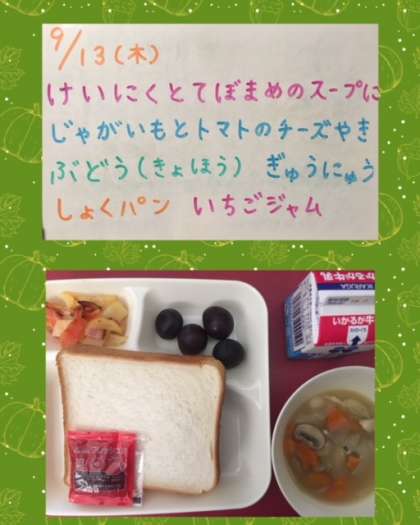 9/13(木)
けいにくとてぼまめのスープに
じゃがいもとトマトのチーズやき
ぶどう(きょほう) ぎゅうにゅう
しょくパン いちごジャム
いかるが牛